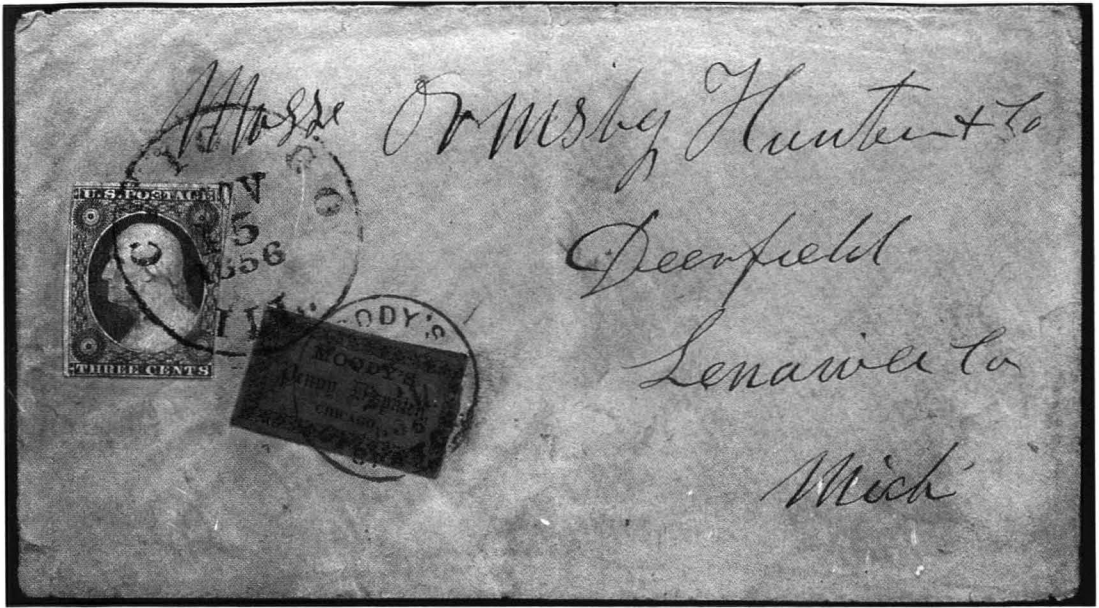 Messr Ormsby Hunter & Co
Deerfield
Lenawee Co
Mich
U.S. POSTAGE
THREE CENTS
CHICAGO
5
1856
ILL
MOODY'S
MOODY'S
Penny Dispatch
CHICAGO